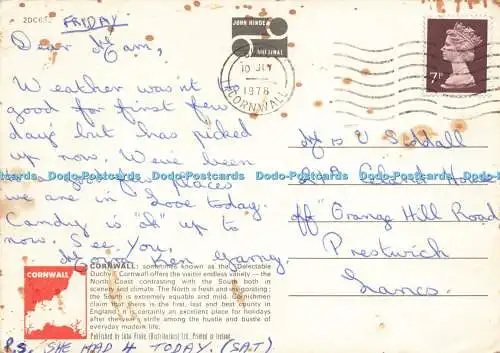 2DC63
FRIDAY
Dear Mam,
Weather wasn't
good for first few
days but has picked
up now. We've been
places
we are in Looe today.
Candy is "OK" up to
now. See You,
Ken
JOHN HINDE
ORIGINAL
10 JLY
1978
CORNWALL
7P
Mrs V Siddall
House
off Grange Hill Road
Prestwich
Lancs.
Dodo-Postcards Dodo-Postcards Dodo-Postcards Dodo-Postcards Dodo-Postcards
CORNWALL
CORNWALL: sometimes known as the Delectable
Duchy. Cornwall offers the visitor endless variety — the
North Coast contrasting with the South both in
scenery and climate. The North is fresh and invigorating;
the South is extremely equable and mild. Cornishmen
claim that theirs is the first, last and best county in
England. It is certainly an excellent place for holidays
after the year's strife among the hustle and bustle of
everyday modern life.
Published by John Hinde (Distributors) Ltd. Printed in Ireland.
P.S. SHE HAD 4 TODAY (SAT)